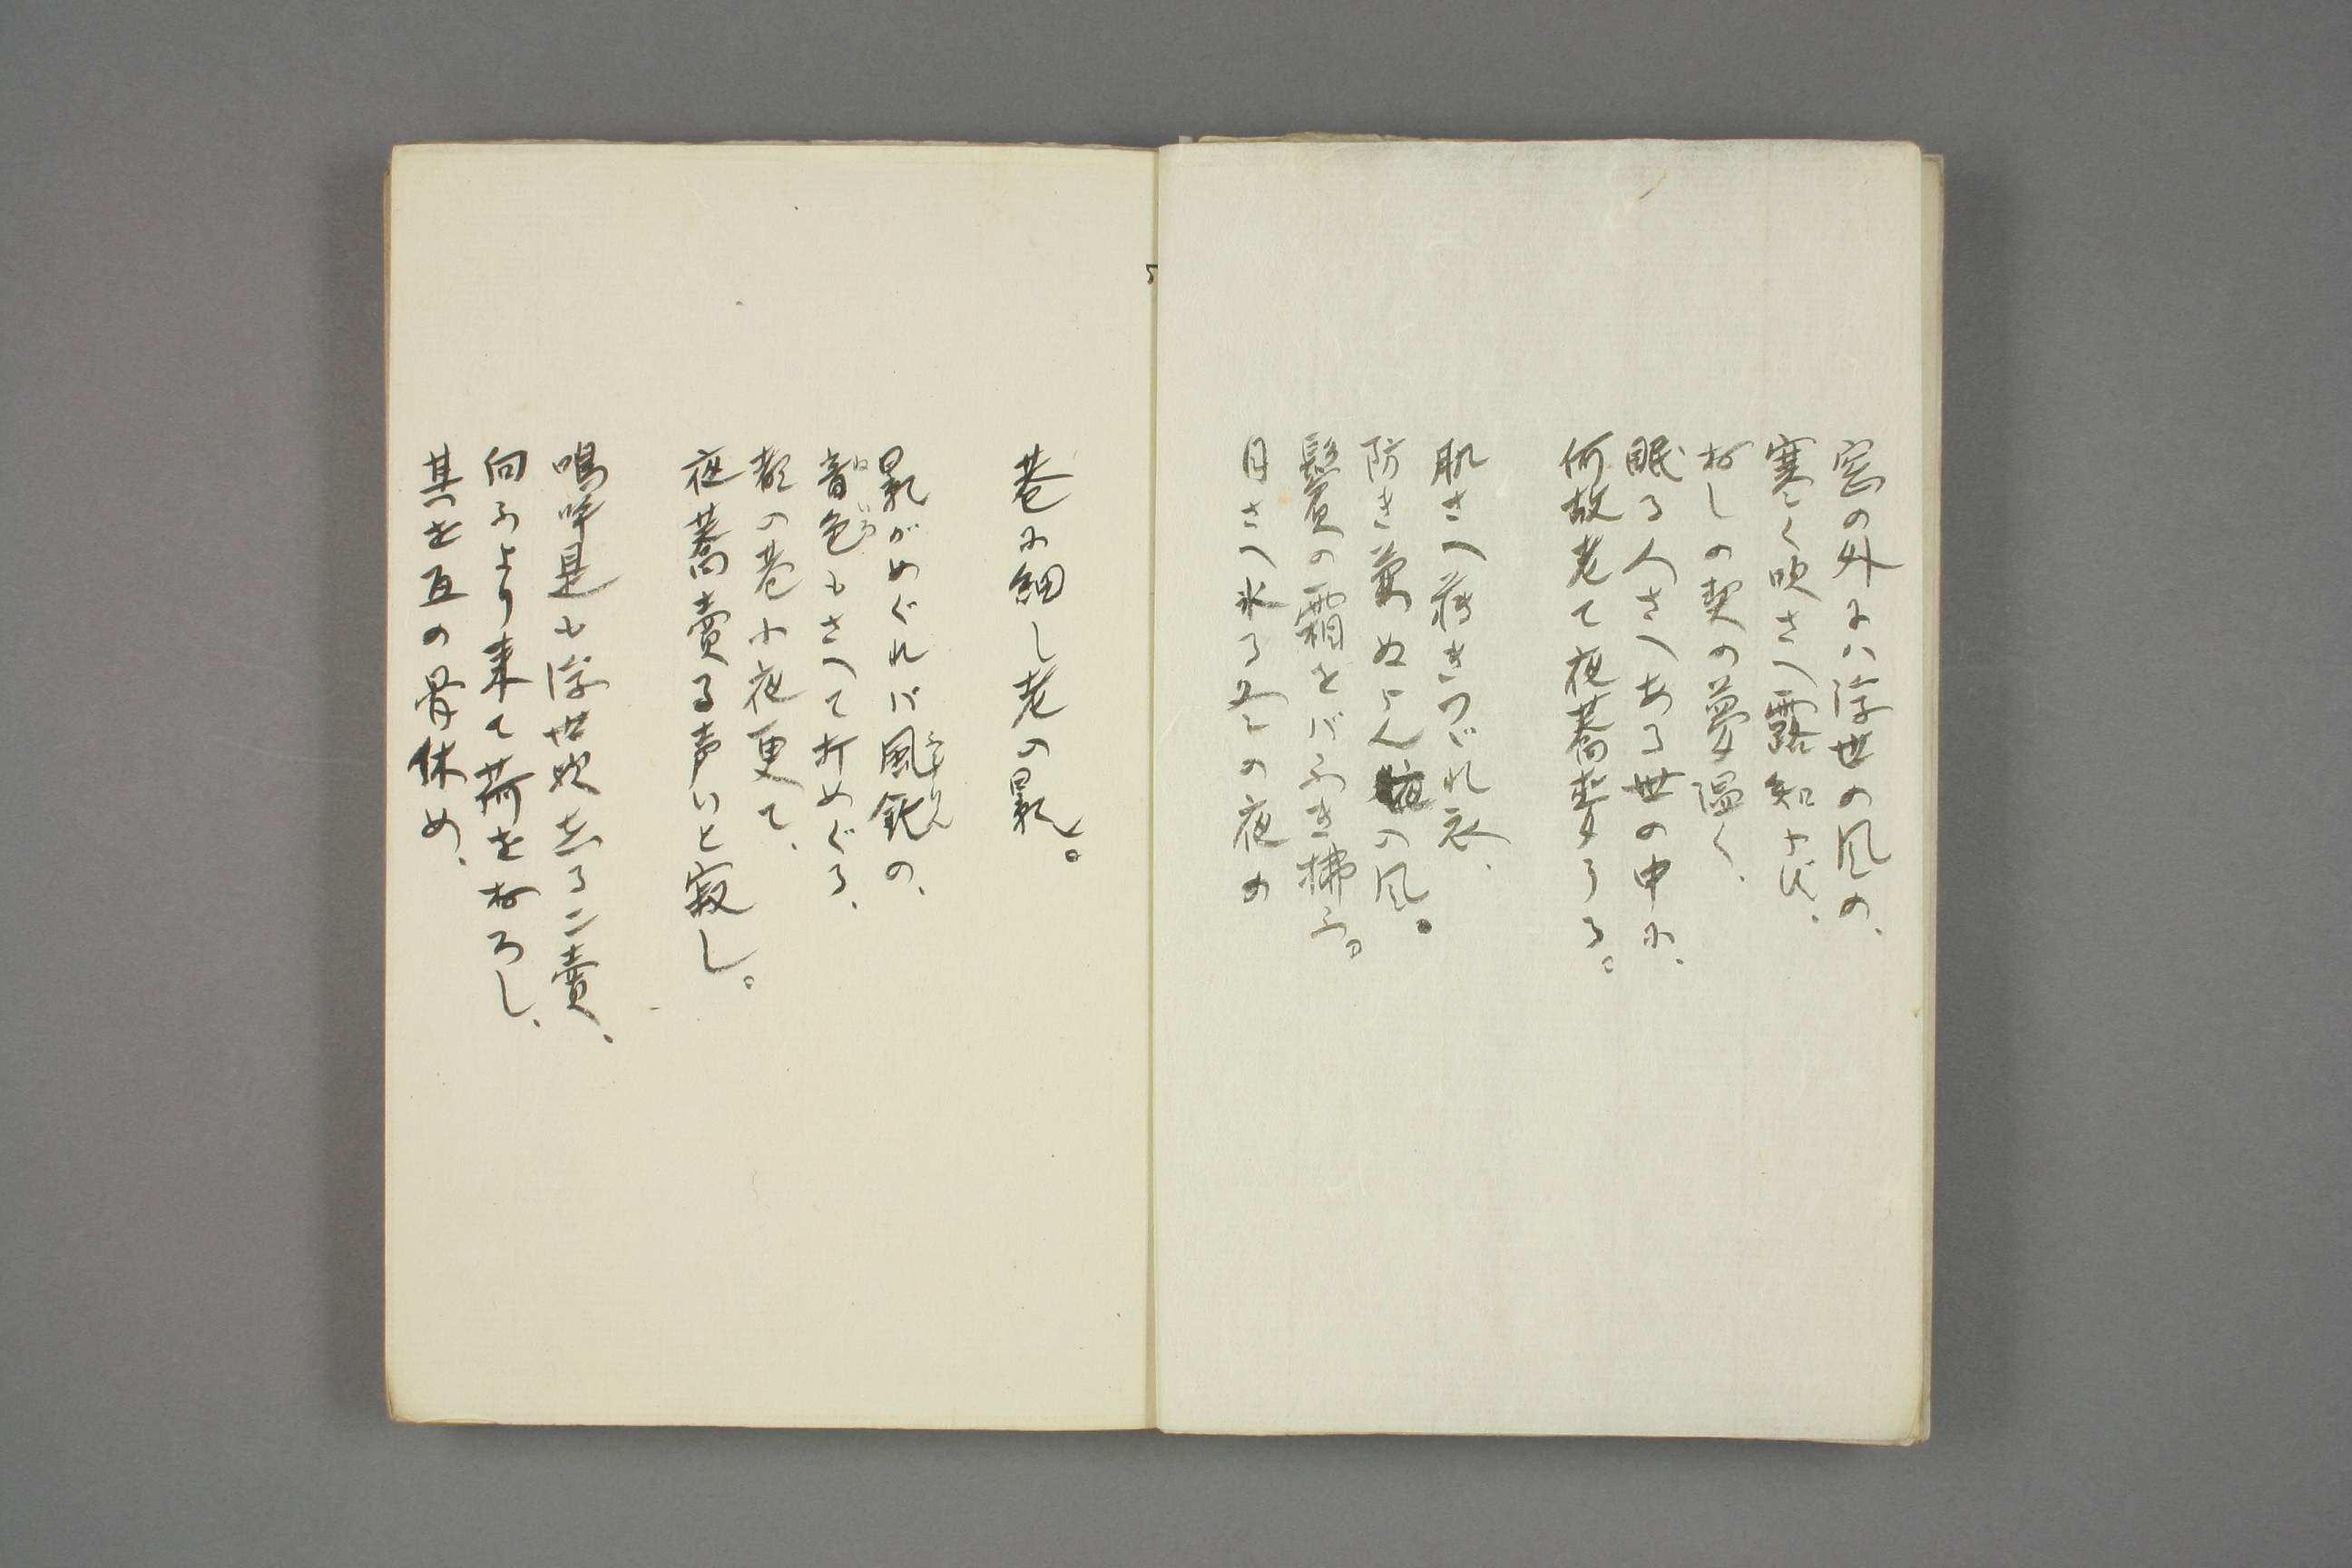 窓の外には浮世の風の、
寒く吹さへ露知らで、
おしの契の夢温く、
眠る人さへある世の中に、
何故老て夜蕎麥うる。
肌さへ薄きつゞれ衣、
防き兼ぬらん夜の風。
鬢の霜をバふき拂ふ。
月さへ氷る冬の夜の
巷に細し老の影。
影がめぐれバ風鈴の、
音色もさへて打めぐる、
都の巷小夜更て、
夜蕎賣る声いと寂し。
嗚呼是も浮世か
向ふより来て荷をおろし、
其を互の骨休め、